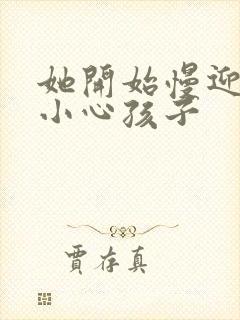 她開始慢迎
小心孩子
賈存真